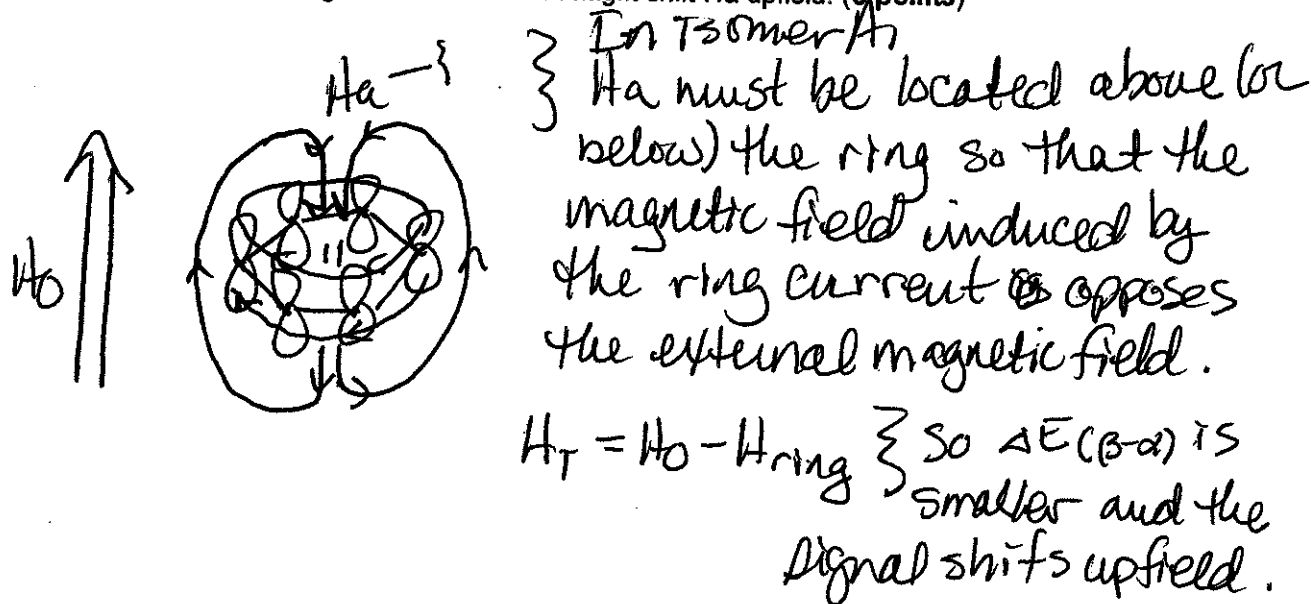 might shift Ha upfield. (6 points)
In Isomer A,
Ha must be located above (or
below) the ring so that the
magnetic field induced by
the ring current opposes
the external magnetic field.
Ha
H0
HT = H0 - Hring } So ΔE(β-α) is
smaller and the
signal shifts upfield.